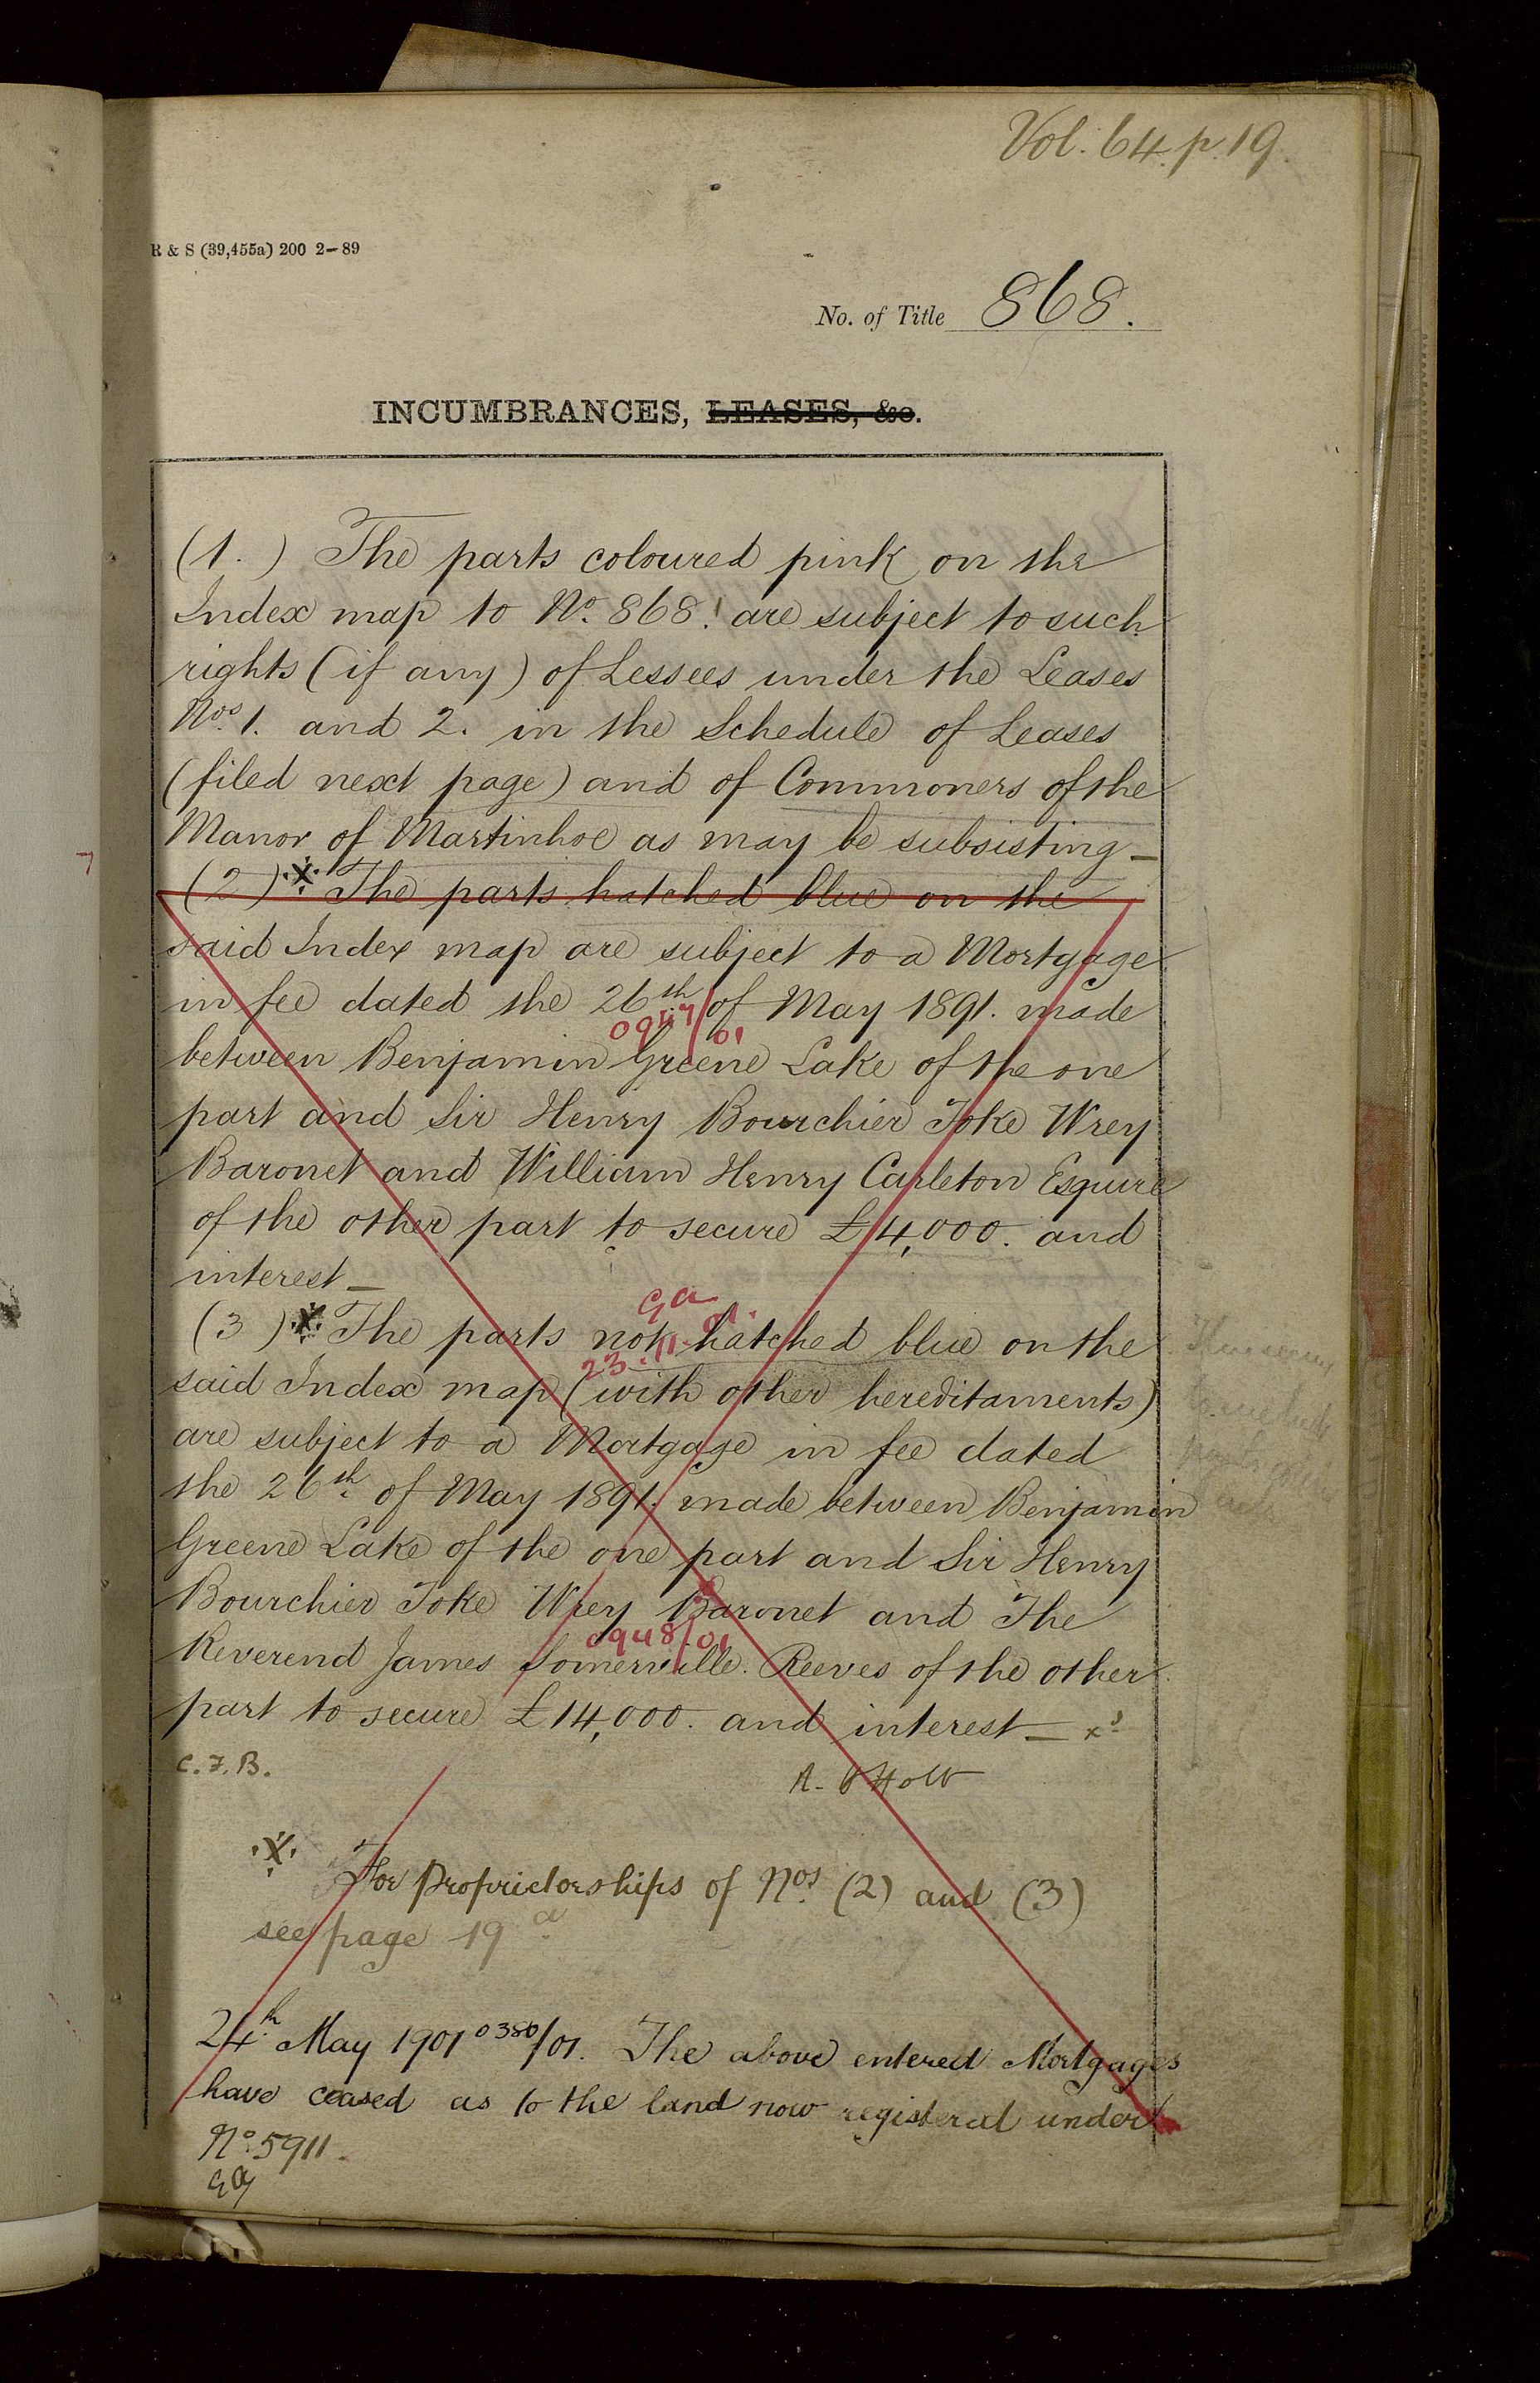 Vol. 64. p. 19.
R & S (39,455a) 200 2-89
No. of Title 868.
INCUMBRANCES, LEASES, &c.
(1.) The parts coloured pink on the
Index map to No. 868. are subject to such
rights (if any) of Lessees under the Leases
Nos. 1. and 2. in the Schedule of Leases
(filed next page) and of Commoners of the
Manor of Martinhoe as may be subsisting_
(2) ※ The parts hatched blue on the
said Index map are subject to a Mortgage
in fee dated the 26th of May 1891. made
0947/01
between Benjamin Greene Lake of the one
part and Sir Henry Bourchier Toke Wrey
Baronet and William Henry Carleton Esquire
of the other part to secure £4,000. and
interest_
(3) ※ The parts not hatched blue on the
23.11.01.
said Index map (with other hereditaments)
are subject to a Mortgage in fee dated
the 26th of May 1891. made between Benjamin
Greene Lake of the one part and Sir Henry
Bourchier Toke Wrey Baronet and The
0948/01
Reverend James Somerville. Reeves of the other
part to secure £14,000. and interest_
C.F.B.
※ For Proprietorships of Nos. (2) and (3)
see page 19a
24th May 1901 0380/01. The above entered Mortgages
have ceased as to the land now registered under
No. 5911.